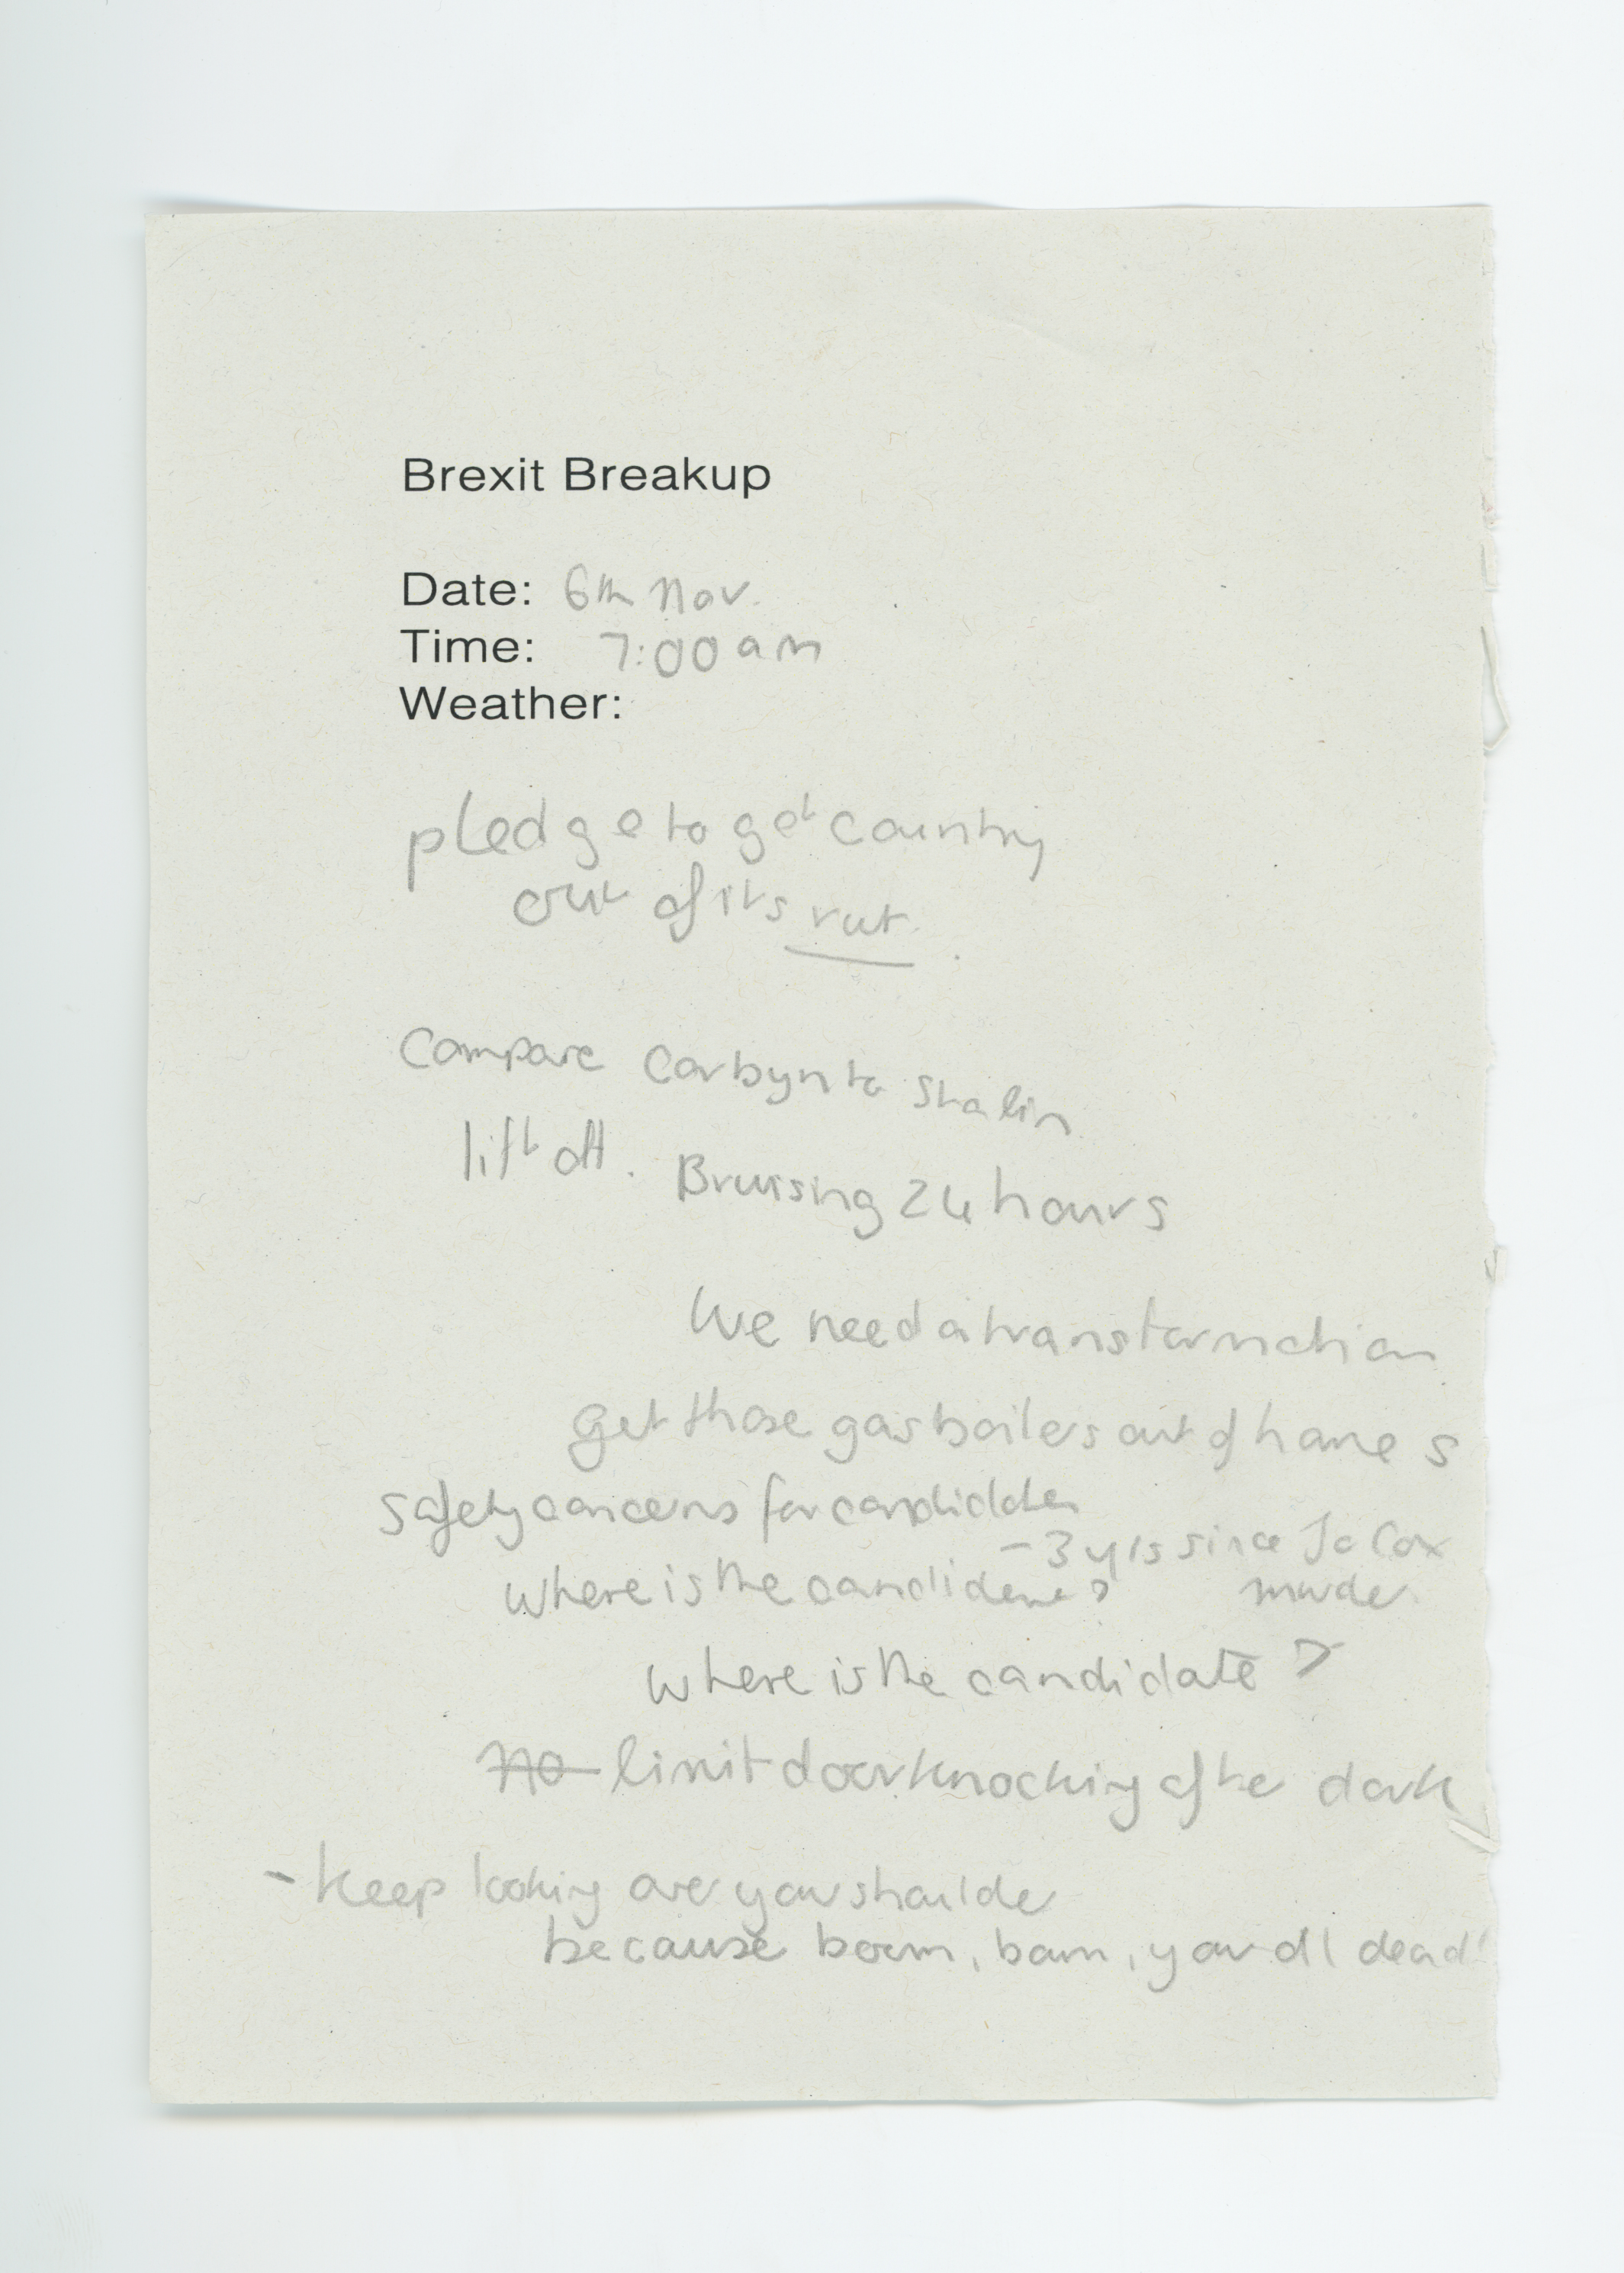 Brexit Breakup
Date: 6th Nov.
Time: 7:00 am
Weather:
pledge to get country
out of its rut.
Compare Corbyn to Stalin
lift off. Bruising 24 hours
We need a transformation
get those gas boilers out of homes
safety concerns for candidates
- 3 yrs since Jo Cox
where is the candidate?
murder.
where is the candidate?
no limit door knocking after dark
- keep looking over your shoulder
because boom, bam, your all dead!